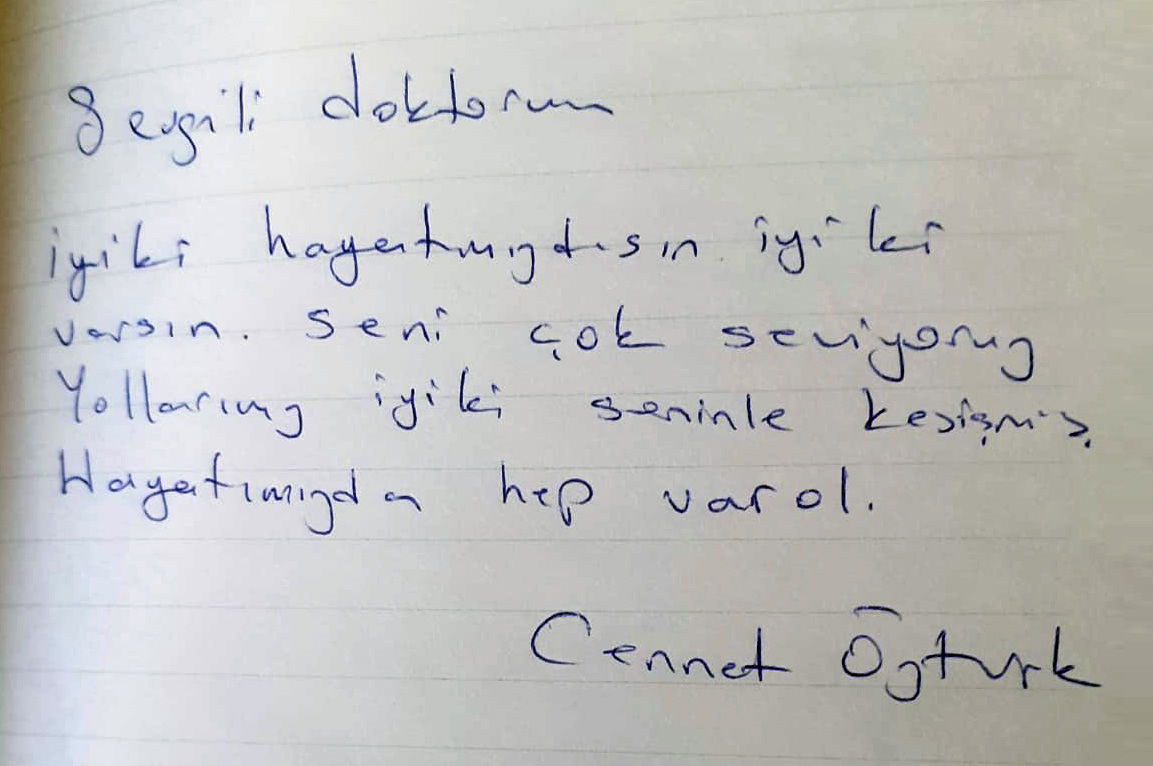 Sevgili doktorum
iyiki hayatımızdasın iyi ki
varsın. seni çok seviyoruz
Yollarımız iyiki seninle kesişmiş.
Hayatımızda hep var ol.
Cennet Öztürk